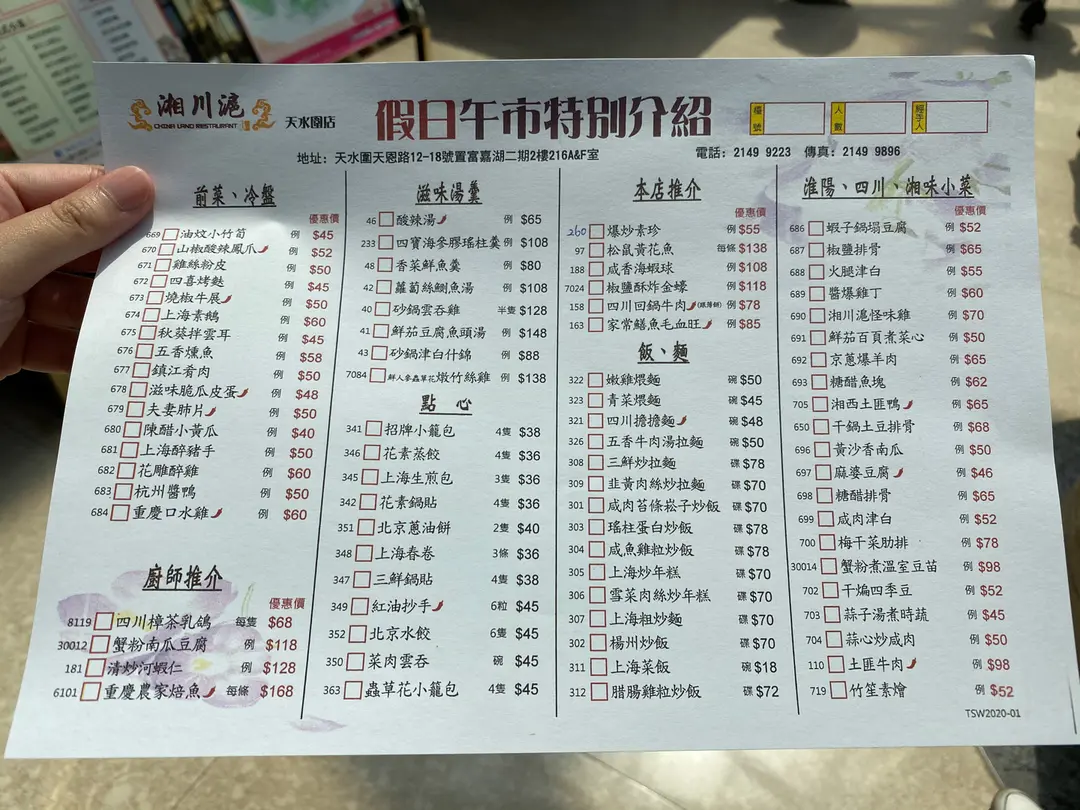 湘川滬
CHINA LAND RESTAURANT
天水圍店
假日午市特別介紹
檯號
人數
經手人
地址：天水圍天恩路12-18號置富嘉湖二期2樓216A&F室
電話：2149 9223 傳真：2149 9896
前菜、冷盤
優惠價
669 油炆小竹筍 例 $45
670 山椒酸辣鳳爪 例 $52
671 雞絲粉皮 例 $50
672 四喜烤麩 例 $45
673 燒椒牛展 例 $50
674 上海素鵝 例 $60
675 秋葵拌雲耳 例 $45
676 五香燻魚 例 $58
677 鎮江肴肉 例 $50
678 滋味脆瓜皮蛋 例 $48
679 夫妻肺片 例 $50
680 陳醋小黃瓜 例 $40
681 上海醉豬手 例 $50
682 花雕醉雞 例 $60
683 杭州醬鴨 例 $50
684 重慶口水雞 例 $60
廚師推介
優惠價
8119 四川樟茶乳鴿 每隻 $68
30012 蟹粉南瓜豆腐 例 $118
181 清炒河蝦仁 例 $128
6101 重慶農家焙魚 每條 $168
滋味湯羹
46 酸辣湯 例 $65
233 四寶海參膠瑤柱羹 例 $108
48 香菜鮮魚羹 例 $80
42 蘿蔔絲鯽魚湯 例 $108
40 砂鍋雲吞雞 半隻 $128
41 鮮茄豆腐魚頭湯 例 $148
43 砂鍋津白什錦 例 $88
7084 鮮人參蟲草花燉竹絲雞 例 $138
點心
341 招牌小籠包 4隻 $38
346 花素蒸餃 4隻 $36
345 上海生煎包 3隻 $36
342 花素鍋貼 4隻 $36
351 北京蔥油餅 2隻 $40
348 上海春卷 3條 $36
347 三鮮鍋貼 4隻 $38
349 紅油抄手 6粒 $45
352 北京水餃 6隻 $45
350 菜肉雲吞 碗 $45
363 蟲草花小籠包 4隻 $45
本店推介
優惠價
260 爆炒素珍 例 $55
97 松鼠黃花魚 每條 $138
188 咸香海蝦球 例 $108
7024 椒鹽酥炸金蠔 例 $118
158 四川回鍋牛肉(跟薄餅) 例 $78
163 家常鱔魚毛血旺 例 $85
飯、麵
322 嫩雞煨麵 碗 $50
323 青菜煨麵 碗 $45
321 四川擔擔麵 碗 $48
326 五香牛肉湯拉麵 碗 $50
308 三鮮炒拉麵 碟 $78
309 韭黃肉絲炒拉麵 碟 $70
301 咸肉苔條崧子炒飯 碟 $70
303 瑤柱蛋白炒飯 碟 $78
304 咸魚雞粒炒飯 碟 $78
305 上海炒年糕 碟 $70
306 雪菜肉絲炒年糕 碟 $70
307 上海粗炒麵 碟 $70
302 楊州炒飯 碟 $70
311 上海菜飯 碗 $18
312 腊腸雞粒炒飯 碟 $72
淮陽、四川、湘味小菜
優惠價
686 蝦子鍋塌豆腐 例 $52
687 椒鹽排骨 例 $65
688 火腿津白 例 $55
689 醬爆雞丁 例 $60
690 湘川滬怪味雞 例 $70
691 鮮茄百頁煮菜心 例 $50
692 京蔥爆羊肉 例 $65
693 糖醋魚塊 例 $62
705 湘西土匪鴨 例 $65
650 干鍋土豆排骨 例 $68
696 黃沙香南瓜 例 $50
697 麻婆豆腐 例 $46
698 糖醋排骨 例 $65
699 咸肉津白 例 $52
700 梅干菜肋排 例 $78
30014 蟹粉煮溫室豆苗 例 $98
702 干煸四季豆 例 $52
703 蒜子湯煮時蔬 例 $45
704 蒜心炒咸肉 例 $50
110 土匪牛肉 例 $98
719 竹笙素燴 例 $52
TSW2020-01